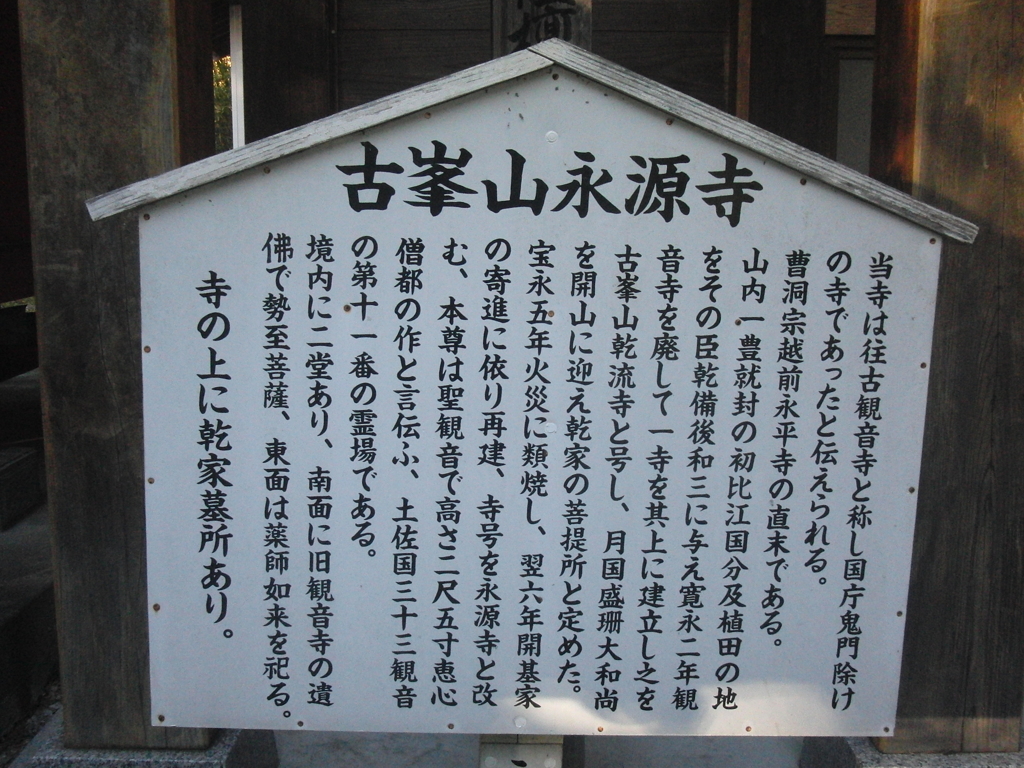 古峯山永源寺
当寺は往古観音寺と称し国庁鬼門除け
の寺であったと伝えられる。
曹洞宗越前永平寺の直末である。
山内一豊就封の初比江国分及植田の地
をその臣乾備後和三に与え寛永二年観
音寺を廃して一寺を其上に建立し之を
古峯山乾流寺と号し、月国盛珊大和尚
を開山に迎え乾家の菩提所と定めた。
宝永五年火災に類焼し、翌六年開基家
の寄進に依り再建、寺号を永源寺と改
む、本尊は聖観音で高さ二尺五寸恵心
僧都の作と言伝ふ、土佐国三十三観音
の第十一番の霊場である。
境内に二堂あり、南面に旧観音寺の遺
佛で勢至菩薩、東面は薬師如来を祀る。
寺の上に乾家墓所あり。